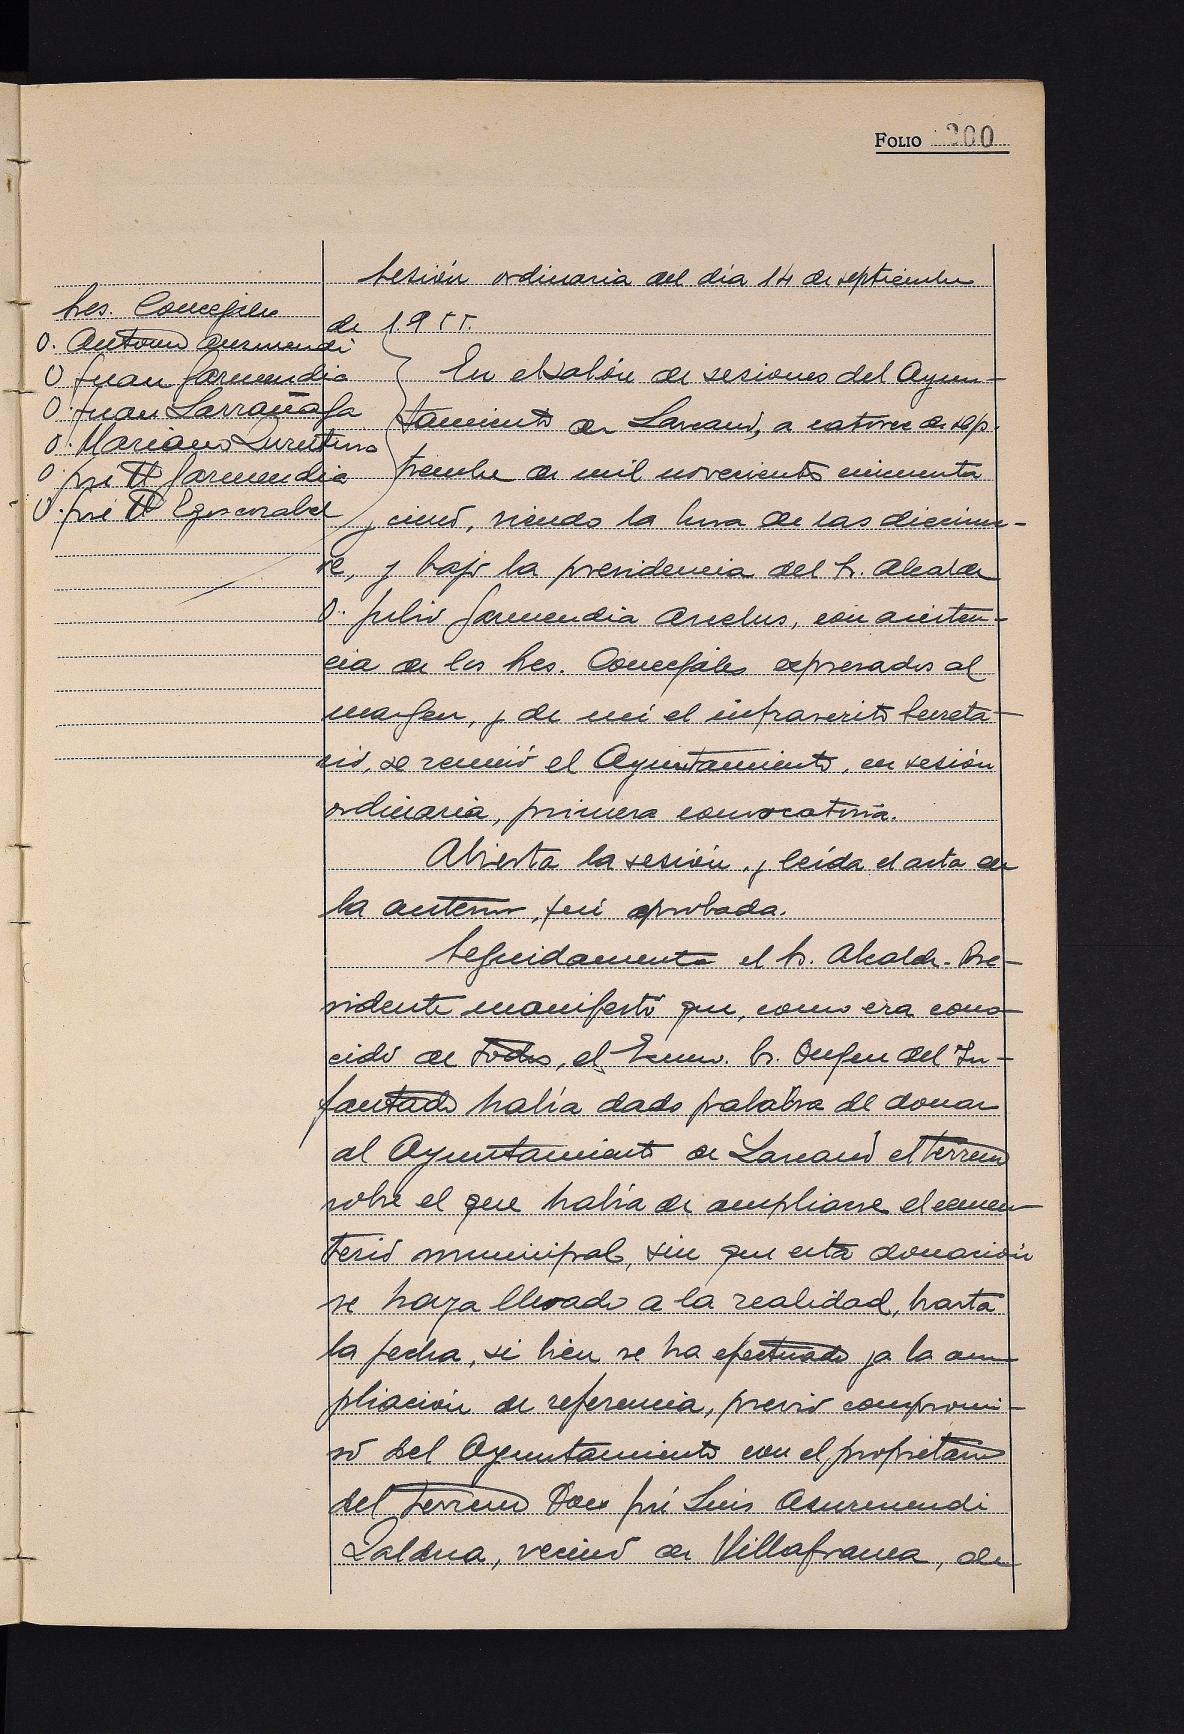 FOLIO 200
Sesión ordinaria del día 14 de septiembre
de 1.955.
Sres. Concejales
D. Antonio Asurmendi
D. Juan Garmendia
D. Juan Larrañaga
D. Mariano
D. José Mª Garmendia
D. José Mª Egoscozabal
En el salón de sesiones del Ayun-
tamiento de Lazcano, a catorce de sep-
tiembre de mil novecientos cincuenta
y cinco, siendo la hora de las diecinue-
ve, y bajo la presidencia del Sr. Alcalde
D. Julio Garmendia Areclus, con asisten-
cia de los Sres. Concejales expresados al
margen, y de mí el infrascrito Secreta-
rio, se reunió el Ayuntamiento, en sesión
ordinaria, primera convocatoria.
Abierta la sesión, y leída el acta de
la anterior, fué aprobada.
Seguidamente el Sr. Alcalde-Pre-
sidente manifestó que, como era cono-
cido de todos, el Excmo. Sr. Duque del In-
fantado había dado palabra de donar
al Ayuntamiento de Lazcano el terreno
sobre el que había de ampliarse el cemen-
terio municipal, sin que esta donación
se haya llevado a la realidad, hasta
la fecha, si bien se ha efectuado ya la am-
pliación de referencia, previo compromi-
so del Ayuntamiento con el propietario
del terreno Don José Luis Asurmendi
Zaldua, vecino de Villafranca, de